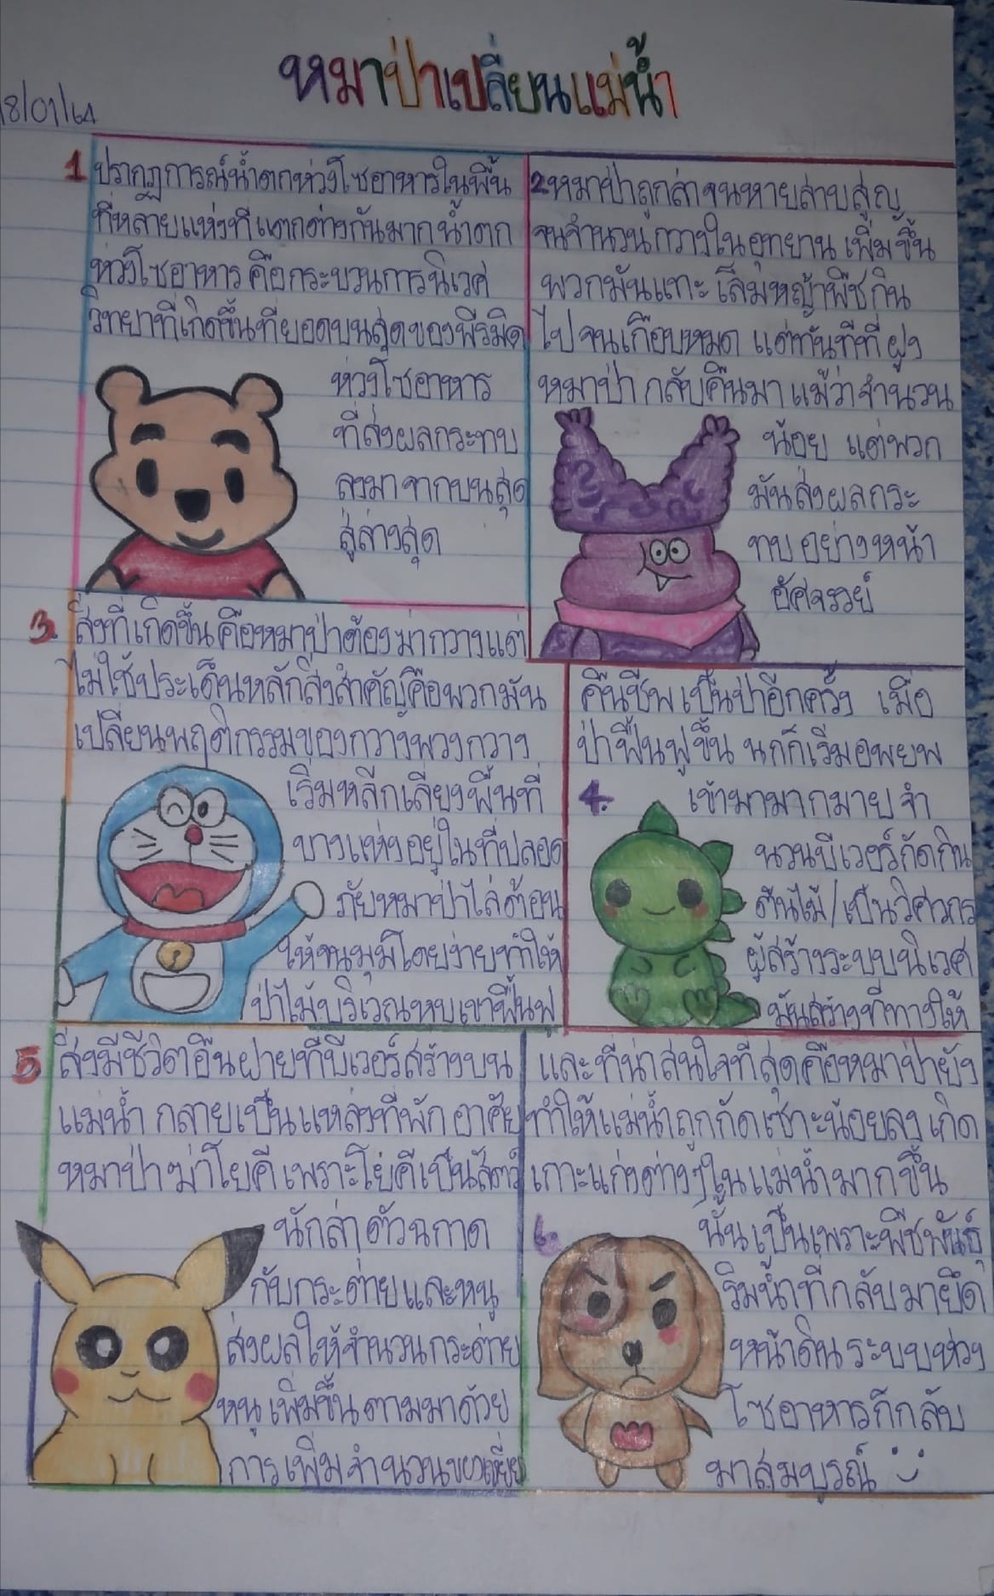 หมาป่าเปลี่ยนแม่น้ำ
18/01/64
1 ปรากฏการณ์น้ำตกห่วงโซ่อาหารในพื้น
ที่หลายแห่งที่แตกต่างกันมาก น้ำตก
ห่วงโซ่อาหาร คือกระบวนการนิเวศ
วิทยาที่เกิดขึ้นที่ยอดบนสุดของพีรมิด
ห่วงโซ่อาหาร
ที่ส่งผลกระทบ
ลงมาจากบนสุด
สู่ล่างสุด
2 หมาป่าถูกล่าจนหายสาบสูญ
จนจำนวนกวางในอุทยาน เพิ่มขึ้น
พวกมันแทะ เล็มหญ้าพืชกิน
ไปจนเกือบหมด แต่ทันทีที่ ฝูง
หมาป่า กลับคืนมา แม้ว่าจำนวน
น้อย แต่พวก
มันส่งผลกระ
ทบ อย่างหน้า
อัศจรรย์
3. สิ่งที่เกิดขึ้น คือหมาป่าต้องฆ่ากวางแต่
ไม่ใช้ประเด็นหลักสิ่งสำคัญคือพวกมัน
เปลี่ยนพฤติกรรมของกวางพวงกวาง
เริ่มหลีกเลี่ยงพื้นที่
บางแห่งอยู่ในที่ปลอด
ภัยหมาป่าไล่ต้อน
ให้จนมุมโดยง่ายทำให้
ป่าไม้บริเวณหุบเขาฟื้นฟู
คืนชีพ เป็นป่าอีกครั้ง เมื่อ
ป่าฟื้นฟูขึ้น นกก็เริ่มอพยพ
4. เข้ามามากมาย จำ
นวนบีเวอร์กัดกิน
ต้นไม้/เป็นวิศวกร
ผู้สร้างระบบนิเวศ
มันสร้างที่ทางให้
5 สิ่งมีชีวิตอื่นฝายที่บีเวอร์สร้างบน
แม่น้ำ กลายเป็นแหล่งที่พัก อาศัย
หมาป่า ฆ่าโยคี เพราะโย่คีเป็นสัตว์
นักล่า ตัวฉกาด
กับกระต่ายและหนู
ส่งผลให้จำนวนกระต่าย
หนู เพิ่มขึ้น ตามมาด้วย
การเพิ่มจำนวนของเหยี่ยว
และที่น่าสนใจที่สุดคือหมาป่ายัง
ทำให้แม่น้ำถูกกัดเซาะน้อยลง เกิด
เกาะแก่งต่างๆในแม่น้ำมากขึ้น
6. นั้นเป็นเพราะพืชพันธุ์
ริมน้ำที่กลับมายึด
หน้าดิน ระบบห่วง
โซ่อาหารก็กลับ
มาสมบูรณ์